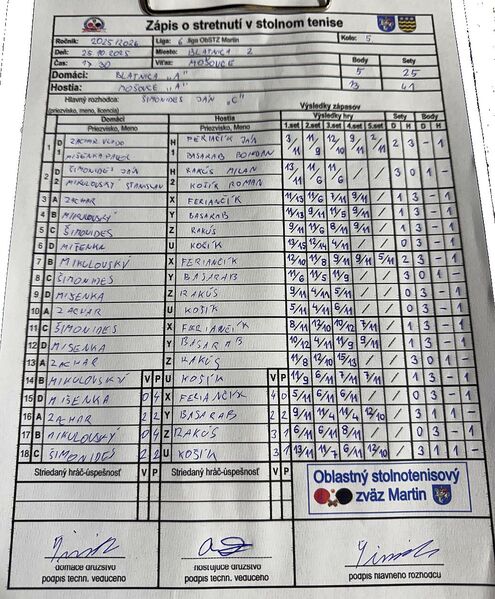 Zápis o stretnutí v stolnom tenise
Ročník: 2025/2026 Liga: 6 .liga ObSTZ Martin Kolo: 5
Deň: 25.10.2025 Miesto: BLATNICA 2
Čas: 17:30 Víťaz: MOŠOVCE Body Sety
Domáci: BLATNICA "A" 5 25
Hostia: MOŠOVCE "A" 13 41
Hlavný rozhodca: ŠIMONIDES JÁN "C"
(priezvisko, meno, licencia) Výsledky zápasov
Domáci Hostia Výsledky hry Sety Body
Priezvisko, Meno Priezvisko, Meno 1.set 2.set 3.set 4.set 5.set D H D H
1 D1 ZACHAR VLADO H1 FERIANČÍK JÁN 2 3 - 1
MIŠENKA PAVOL BASARAB BOHDAN
2 D2 ŠIMONIDES JÁN H2 RAKÚS MILAN 3 0 1 -
MIKULOVSKÝ STANISLAV KOŠÍK ROMAN
3 A ZACHAR X FERIANČÍK 1 3 - 1
4 B MIKULOVSKÝ Y BASARAB 1 3 - 1
5 C ŠIMONIDES Z RAKÚS 1 3 - 1
6 D MIŠENKA U KOŠÍK 0 3 - 1
7 B MIKULOVSKÝ X FERIANČÍK 12/10 11/8 9/11 9/11 5/11 2 3 - 1
8 C ŠIMONIDES Y BASARAB 11/6 11/5 11/9 / / 3 0 1 -
9 D MIŠENKA Z RAKÚS 9/11 4/11 5/11 / / 0 3 - 1
10 A ZACHAR U KOŠÍK 5/11 4/11 6/11 / / 0 3 - 1
11 C ŠIMONIDES X FERIANČÍK 8/11 12/10 10/12 7/11 / 1 3 - 1
12 D MIŠENKA Y BASARAB 10/12 4/11 9/11 / / 0 3 - 1
13 A ZACHAR Z RAKÚS 11/8 12/10 15/13 / / 3 0 1
14 B MIKULOVSKÝ V P U KOŠÍK V P 11/9 6/11 7/11 7/11 / 1 3 - 1
15 D MIŠENKA 0 4 X FERIANČÍK 4 0 5/11 6/11 6/11 / / 0 3 - 1
16 A ZACHAR 2 2 Y BASARAB 2 2 9/11 11/4 11/4 12/10 / 3 1 1 -
17 B MIKULOVSKÝ 0 4 Z RAKÚS 3 1 6/11 6/11 8/11 / / 0 3 - 1
18 C ŠIMONIDES 2 2 U KOŠÍK 3 1 13/11 11/7 6/11 12/10 / 3 1 1 -
Striedaný hráč-úspešnosť V P Striedaný hráč-úspešnosť V P
Oblastný stolnotenisový
zväz Martin
domáce družstvo hosťujúce družstvo
podpis techn. vedúceho podpis techn. vedúceho podpis hlavného rozhodcu